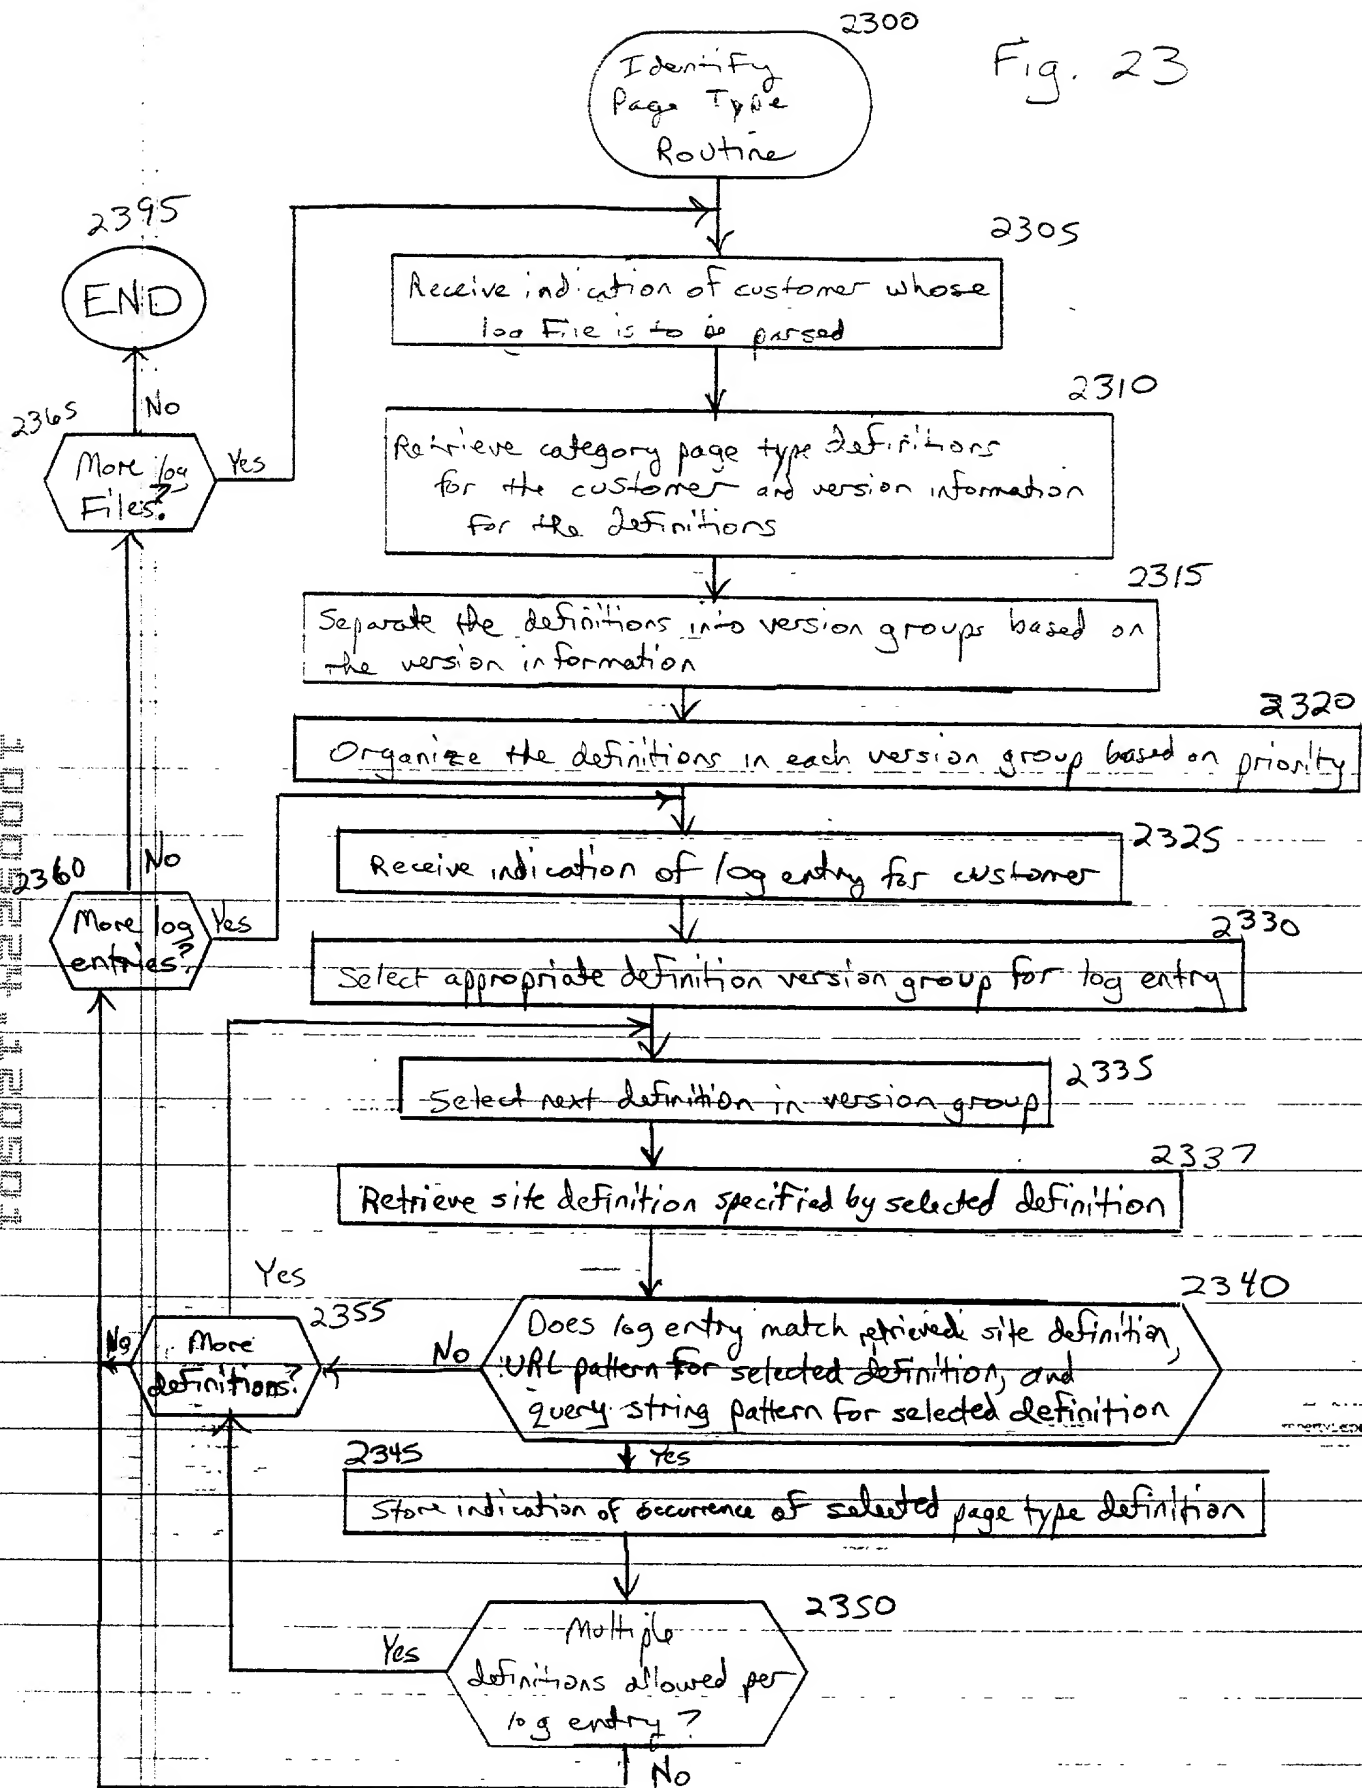 2300
Fig. 23
Identify
Page Type
Routine
2395
END
2305
Receive indication of customer whose
log File is to be parsed
No
2365
More log
Files?
Yes
2310
Retrieve category page type definitions
for the customer and version information
for the definitions
2315
Separate the definitions into version groups based on
the version information
2320
Organize the definitions in each version group based on priority
2325
Receive indication of log entry for customer
No
2360
More log
entries?
Yes
2330
Select appropriate definition version group for log entry
2335
Select next definition in version group
2337
Retrieve site definition specified by selected definition
Yes
2355
No
More
definitions?
No
2340
Does log entry match retrieved site definition,
URL pattern for selected definition, and
query string pattern for selected definition
Yes
2345
Store indication of occurrence of selected page type definition
2350
Multiple
definitions allowed per
log entry?
Yes
No